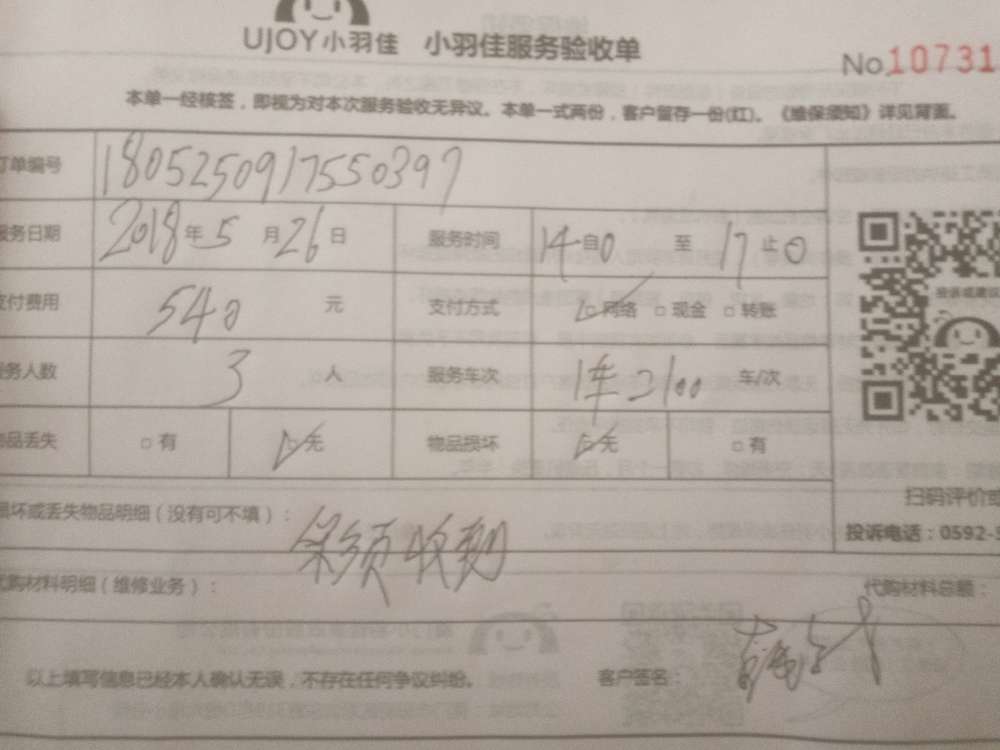 UJOY小羽佳 小羽佳服务验收单
No.10731
本单一经核签，即视为对本次服务验收无异议。本单一式两份，客户留存一份(红)。《维保须知》详见背面。
订单编号 1805250917550397
服务日期 2018年5月26日 服务时间 14自0至17止0
支付费用 540元 支付方式 网络 现金 转账
服务人数 3人 服务车次 1车 2100 车/次
物品丢失 有 无 物品损坏 无 有
投诉或建议
扫码评价或
损坏或丢失物品明细（没有可不填）：
投诉电话：0592-5
收到
代购材料明细（维修业务）：
代购材料总额：
以上填写信息已经本人确认无误，不存在任何争议纠纷。 客户签名：